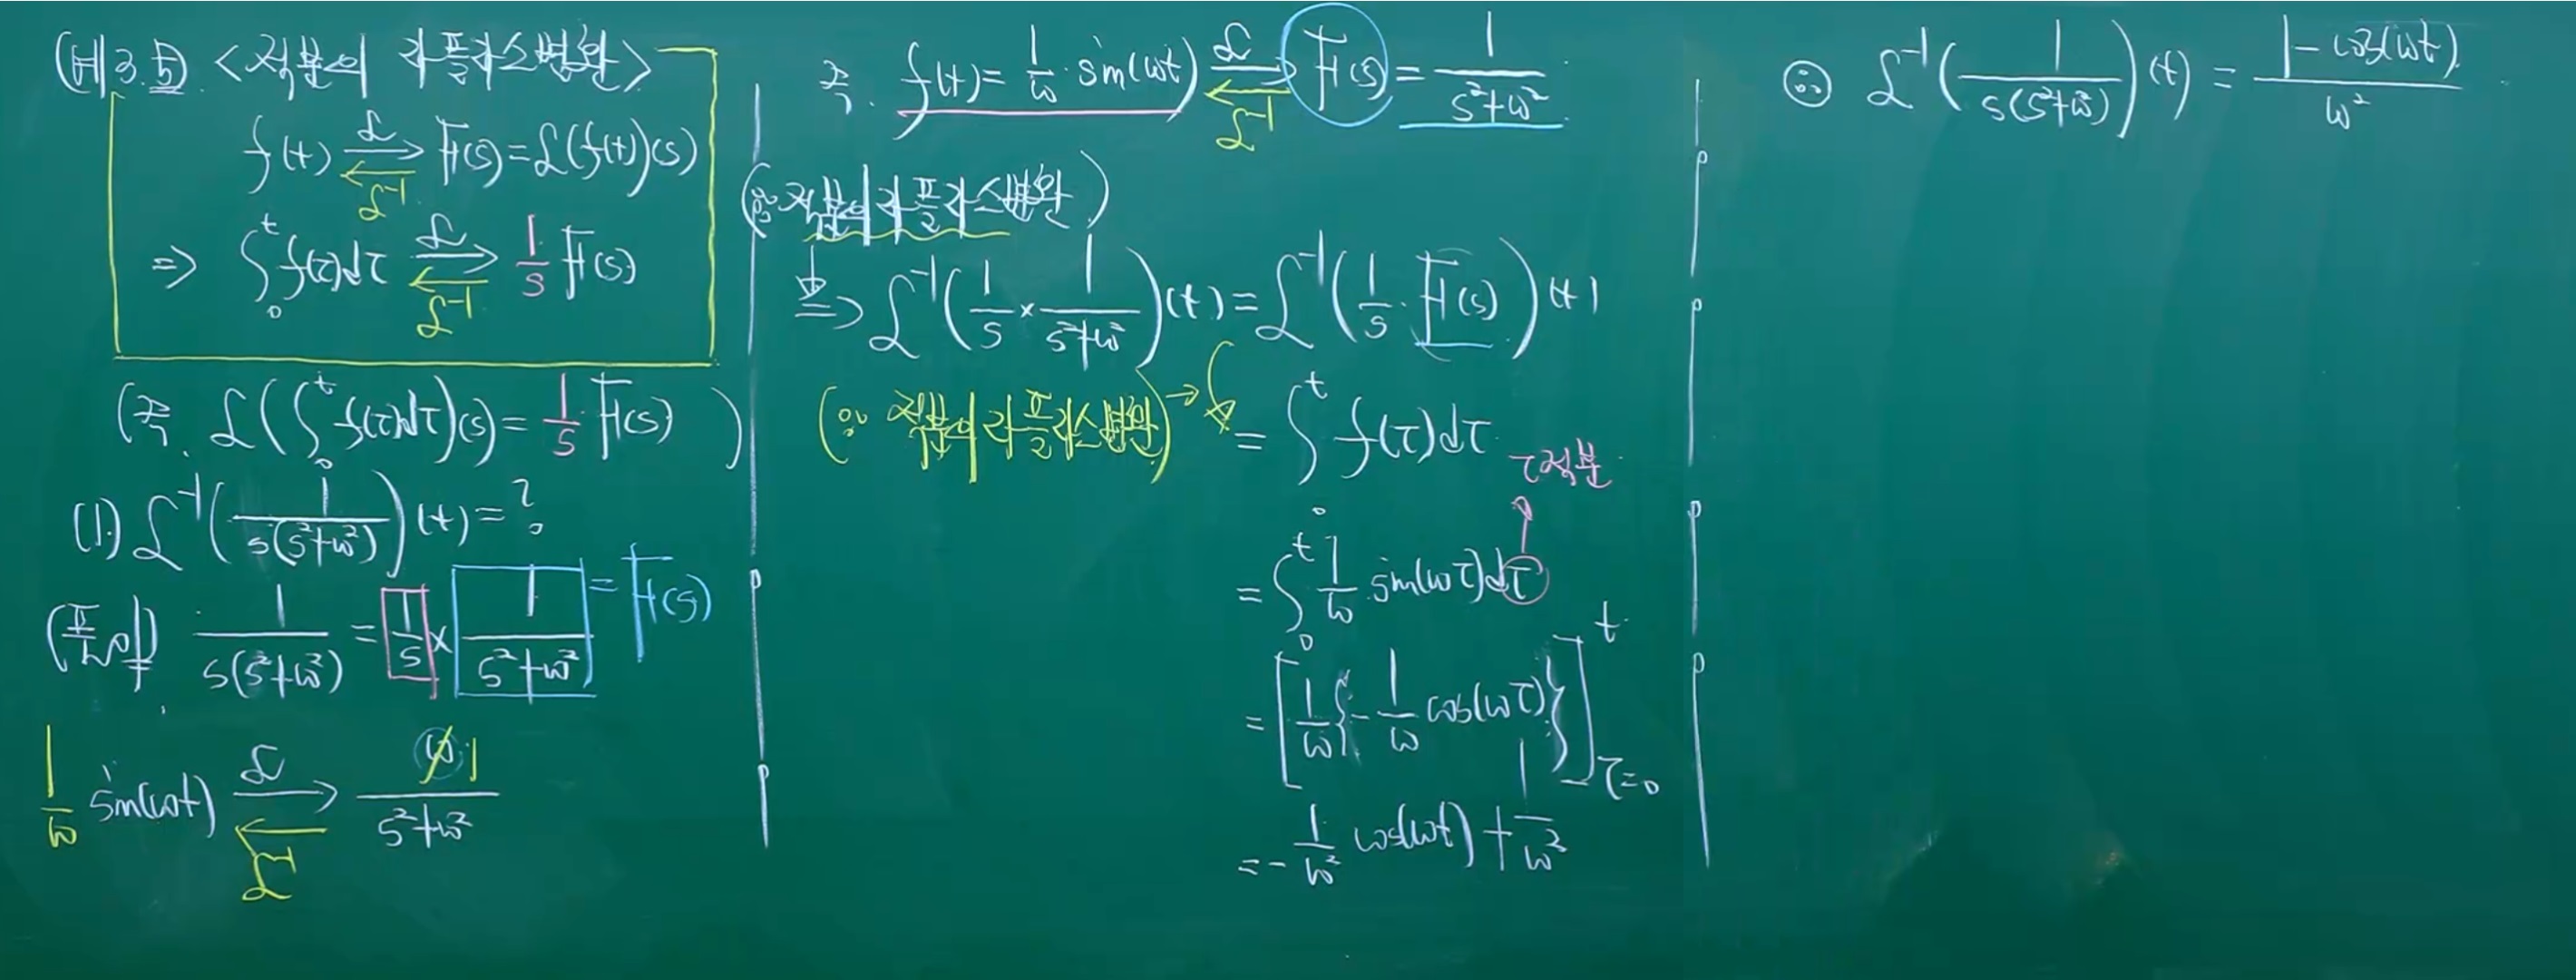 (예3.5) <적분의 라플라스변환>
f(t) ⇄ F(s)=ℒ(f(t))(s)
ℒ
ℒ⁻¹
⇒ ∫₀ᵗ f(τ)dτ ⇄ 1/s F(s)
ℒ
ℒ⁻¹
(즉. ℒ(∫₀ᵗ f(τ)dτ)(s)= 1/s F(s))
(1) ℒ⁻¹(1/(s(s²+ω²)))(t)=?
(풀이) 1/(s(s²+ω²)) = 1/s × 1/(s²+ω²) = F(s)
1/ω sin(ωt) ⇄ ω 1/(s²+ω²)
ℒ
ℒ⁻¹
즉. f(t)= 1/ω · sin(ωt) ⇄ F(s) = 1/(s²+ω²)
ℒ
ℒ⁻¹
(∵ 적분의 라플라스변환)
⇒ ℒ⁻¹(1/s × 1/(s²+ω²))(t) = ℒ⁻¹(1/s · F(s))(t)
(∵ 적분의 라플라스변환) → = ∫₀ᵗ f(τ)dτ
τ적분
= ∫₀ᵗ 1/ω sin(ωτ)dτ
= [1/ω{-1/ω cos(ωτ)}]_{τ=0}^t
= -1/ω² cos(ωt) + 1/ω²
∴ ℒ⁻¹(1/(s(s²+ω²)))(t) = (1-cos(ωt))/ω²